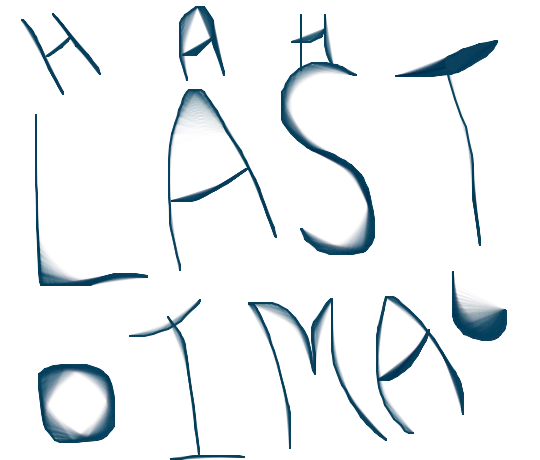 HAH
LAST
O IMAJ